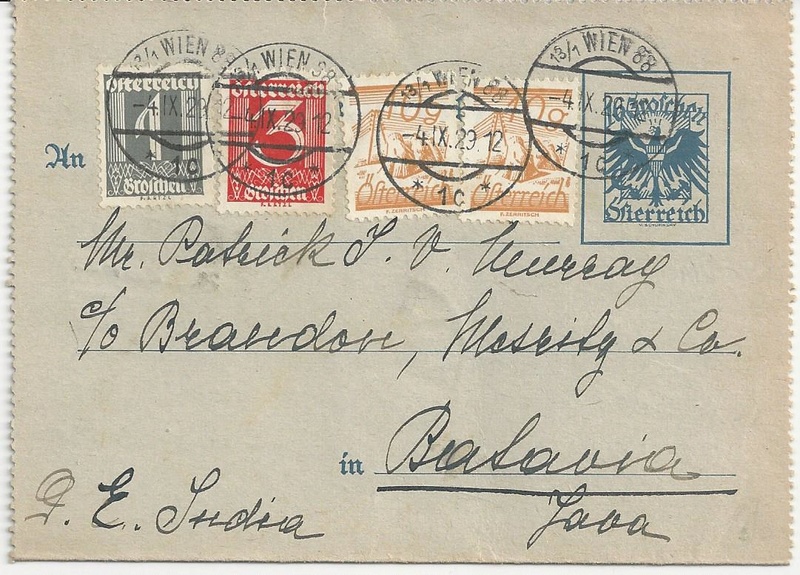 13/1 WIEN 88
-4.IX.29 12
* 1c *
13/1 WIEN 88
-4.IX.29.12
1c
13/1 WIEN 88
-4.IX.29.12
* 1c *
13/1 WIEN 88
-4.IX.29
* 1c
Österreich
1
Groschen
Österreich
3
Groschen
10g
Österreich
10g
Österreich
F. ZERRITSCH
Groschen
Österreich
An
Mr. Patrick J. V. Murray
c/o Brandon, Mesritz & Co.
in Batavia
D. E. India Java